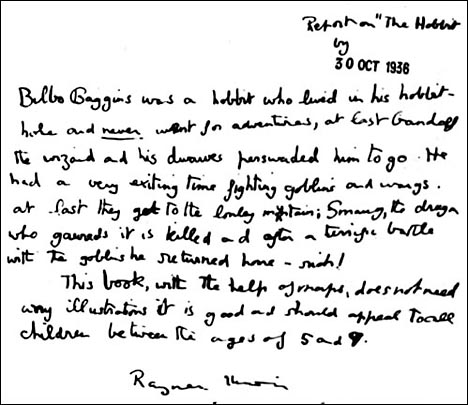 Report on "The Hobbit"
by
30 OCT 1936
Bilbo Baggins was a hobbit who lived in his hobbit-
hole and never went for adventures, at last Gandalf
the wizard and his dwarves perswaded him to go. He
had a very exiting time fighting goblins and wargs.
at last they got to the lonley mountain; Smaug, the dragon
who gawreds it is killed and after a terrific battle
with the goblins he returned home - rich!
This book, with the help of maps, does not need
any illustrations it is good and should appeal to all
children between the ages of 5 and 9.
Rayner Unwin